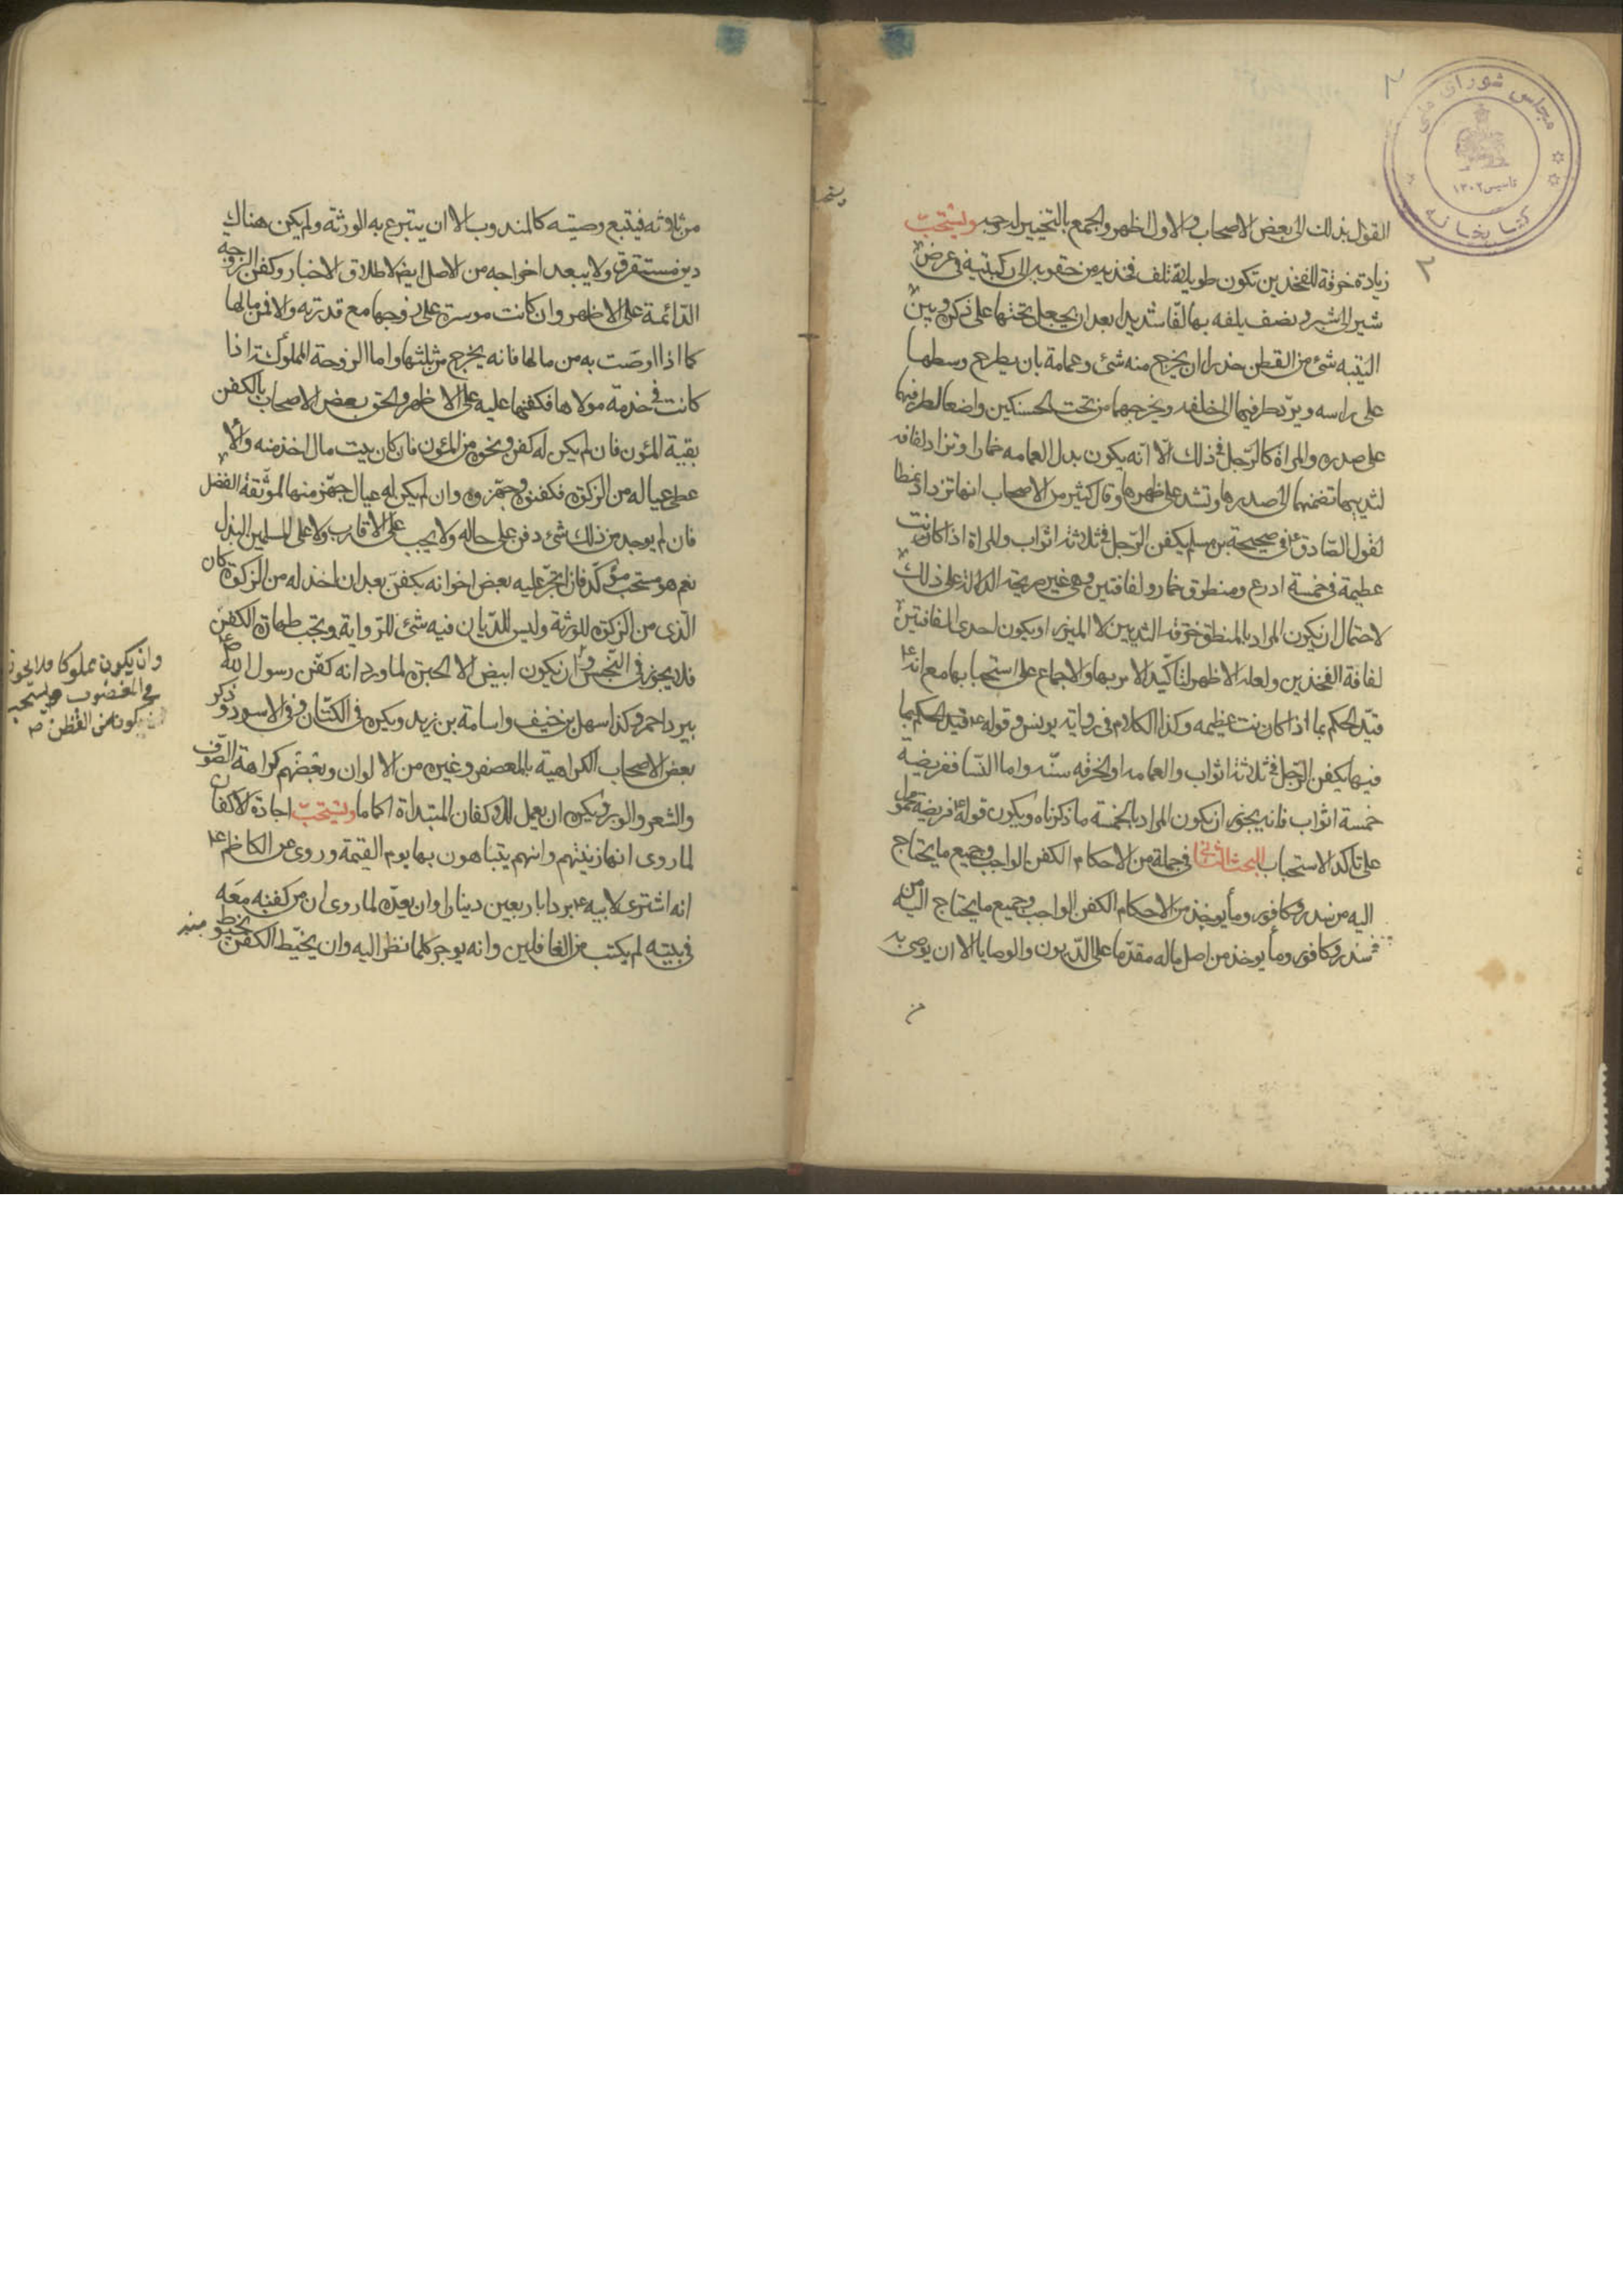 مجلس شورای ملی
تاسیس ۱۳۰۲
کتابخانه
القول بذلك الى بعض الاصحاب والاول اظهر والجمع بالتخيير له وجه ويستحب
زيادة خرقة للفخذين تكون طويلة تلف فخذيه من حقويه الى ركبتيه في عرض
شبر الى شبر ونصف يلفه بها لفا شديدا بعد ان يجعل تحتها على ذكره وبين
اليتيه شئ من القطن حذرا ان يخرج منه شئ وعمامة بان يطرح وسطها
على راسه ويرد طرفيها الى خلفه ويخرجهما من تحت الحنكين واضعا لطرفيها
على صدره والمراة كالرجل في ذلك الا انه يكون بدل العمامه خمارا وتزاد لفافه
لثدييها تضمهما الى صدرها وتشد على ظهرها وقال كثير من الاصحاب انها تزداد نمطا
لقول الصادق ع في صحيحة بن مسلم يكفن الرجل في ثلاثة اثواب والمراة اذا كانت
عظيمة في خمسة ادرع ومنطق وخمار ولفافتين وهي غير صريحة الدلالة على ذلك
لاحتمال ان يكون المراد بالمنطق خرقة الثديين لا الميزر او يكون احدى اللفافتين
لفافة الفخذين ولعله الاظهر لتاكيد الامر بها والاجماع على استحبابها مع انه ع
قيد الحكم بما اذا كانت عظيمه وكذا الكلام في رواية يونس وقوله ع قيد الحكم بما
فيها يكفن الرجل في ثلاثة اثواب والعمامه والخرقه سنه واما النسا ففريضة
خمسة اثواب فانه يجوز ان يكون المراد بالخمسة ما ذكرناه ويكون قوله ع فريضة محمول
على تاكد الاستحباب البحث الثاني في جملة من الاحكام الكفن الواجب وجميع ما يحتاج
اليه من سدر وكافور وما يوخذ من الاحكام الكفن الواجب وجميع ما يحتاج اليه من
سدر وكافور وما يوخذ من اصل ماله مقدما على الديون والوصايا الا ان يوصى به
من
من ثلثه فيتبع وصيته كالمندوب الا ان يتبرع به الورثة ولم يكن هناك
دين مستغرق ولا يبعد اخراجه من الاصل ايض لاطلاق الاخبار وكفن الزوجه
الدائمة على الاظهر وان كانت موسرة على زوجها مع قدرته والا فمن مالها
كما اذا اوصت به من مالها فانه يخرج من ثلثها واما الزوجة المملوكة اذا
كانت في خدمة مولاها فكفنها عليه على الاظهر والحق بعض الاصحاب بالكفن
بقية المؤن فان لم يكن له كفن ونحوه من المئون فان كان بيت مال اخذ منه والا
عطى عياله من الزكوة فكفنوه وجهزوه وان لم يكن له عيال جهز منها لموثقة الفضل
فان لم يوجد من ذلك شئ دفن على حاله ولا يجب على الاقارب ولا على المسلمين البذل
نعم هو مستحب مؤكد فان اتجر عليه بعض اخوانه بكفن بعد ان اخذ له من الزكوة كان
الذي من الزكوة للورثة وليس للديان فيه شئ للرواية ويجب طهارة الكفن
فلا يجوز في النجس وان يكون ابيض الا الحبرة لما ورد انه كفن رسول الله ص
ببرد احمر وكذا سهل بن حنيف واسامة بن زيد ويكره في الكتان وفي الاسود وذكر
بعض الاصحاب الكراهية بالمعصفر وغيره من الالوان وبعضهم كراهة الصوف
والشعر والوبر ويكره ان يعمل للاكفان المبتداة اكماما ويستحب اجادة الاكفان
لما روى انها زينتهم وانهم يتباهون بها يوم القيمة وروى عن الكاظم ع
انه اشترى لابيه ع بردا باربعين دينارا وان يعده لما روى ان من كفنه معه
في بيته لم يكتب من الغافلين وانه يوجر كلما نظر اليه وان يخيط الكفن بخيوط منه
وان يكون مملوكا فلا يجوز
في المغصوب ويستحب
كونه من القطن صح